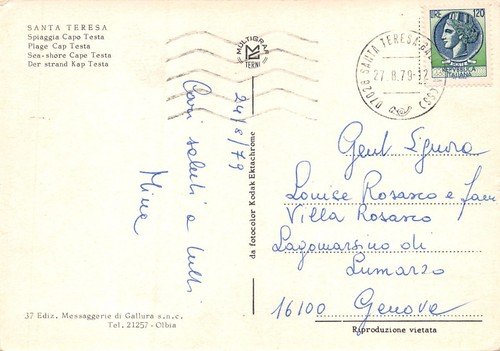 SANTA TERESA
Spiaggia Capo Testa
Plage Cap Testa
Sea-shore Capo Testa
Der strand Kap Testa
MULTIGRAF
TERNI
24/8/79
Cari saluti a tutti
Mina
da fotocolor Kodak Ektachrome
LIRE 120
ITALIANA
07028 SANTA TERESA GAL
27.8.79-12
(SS)
Gent Signora
Louise Rosasco e fam
Villa Rosasco
Lagomarsino di
Lumarzo
16100 Genova
37 Ediz. Messaggerie di Gallura s.n.c.
Tel. 21257 - Olbia
Riproduzione vietata